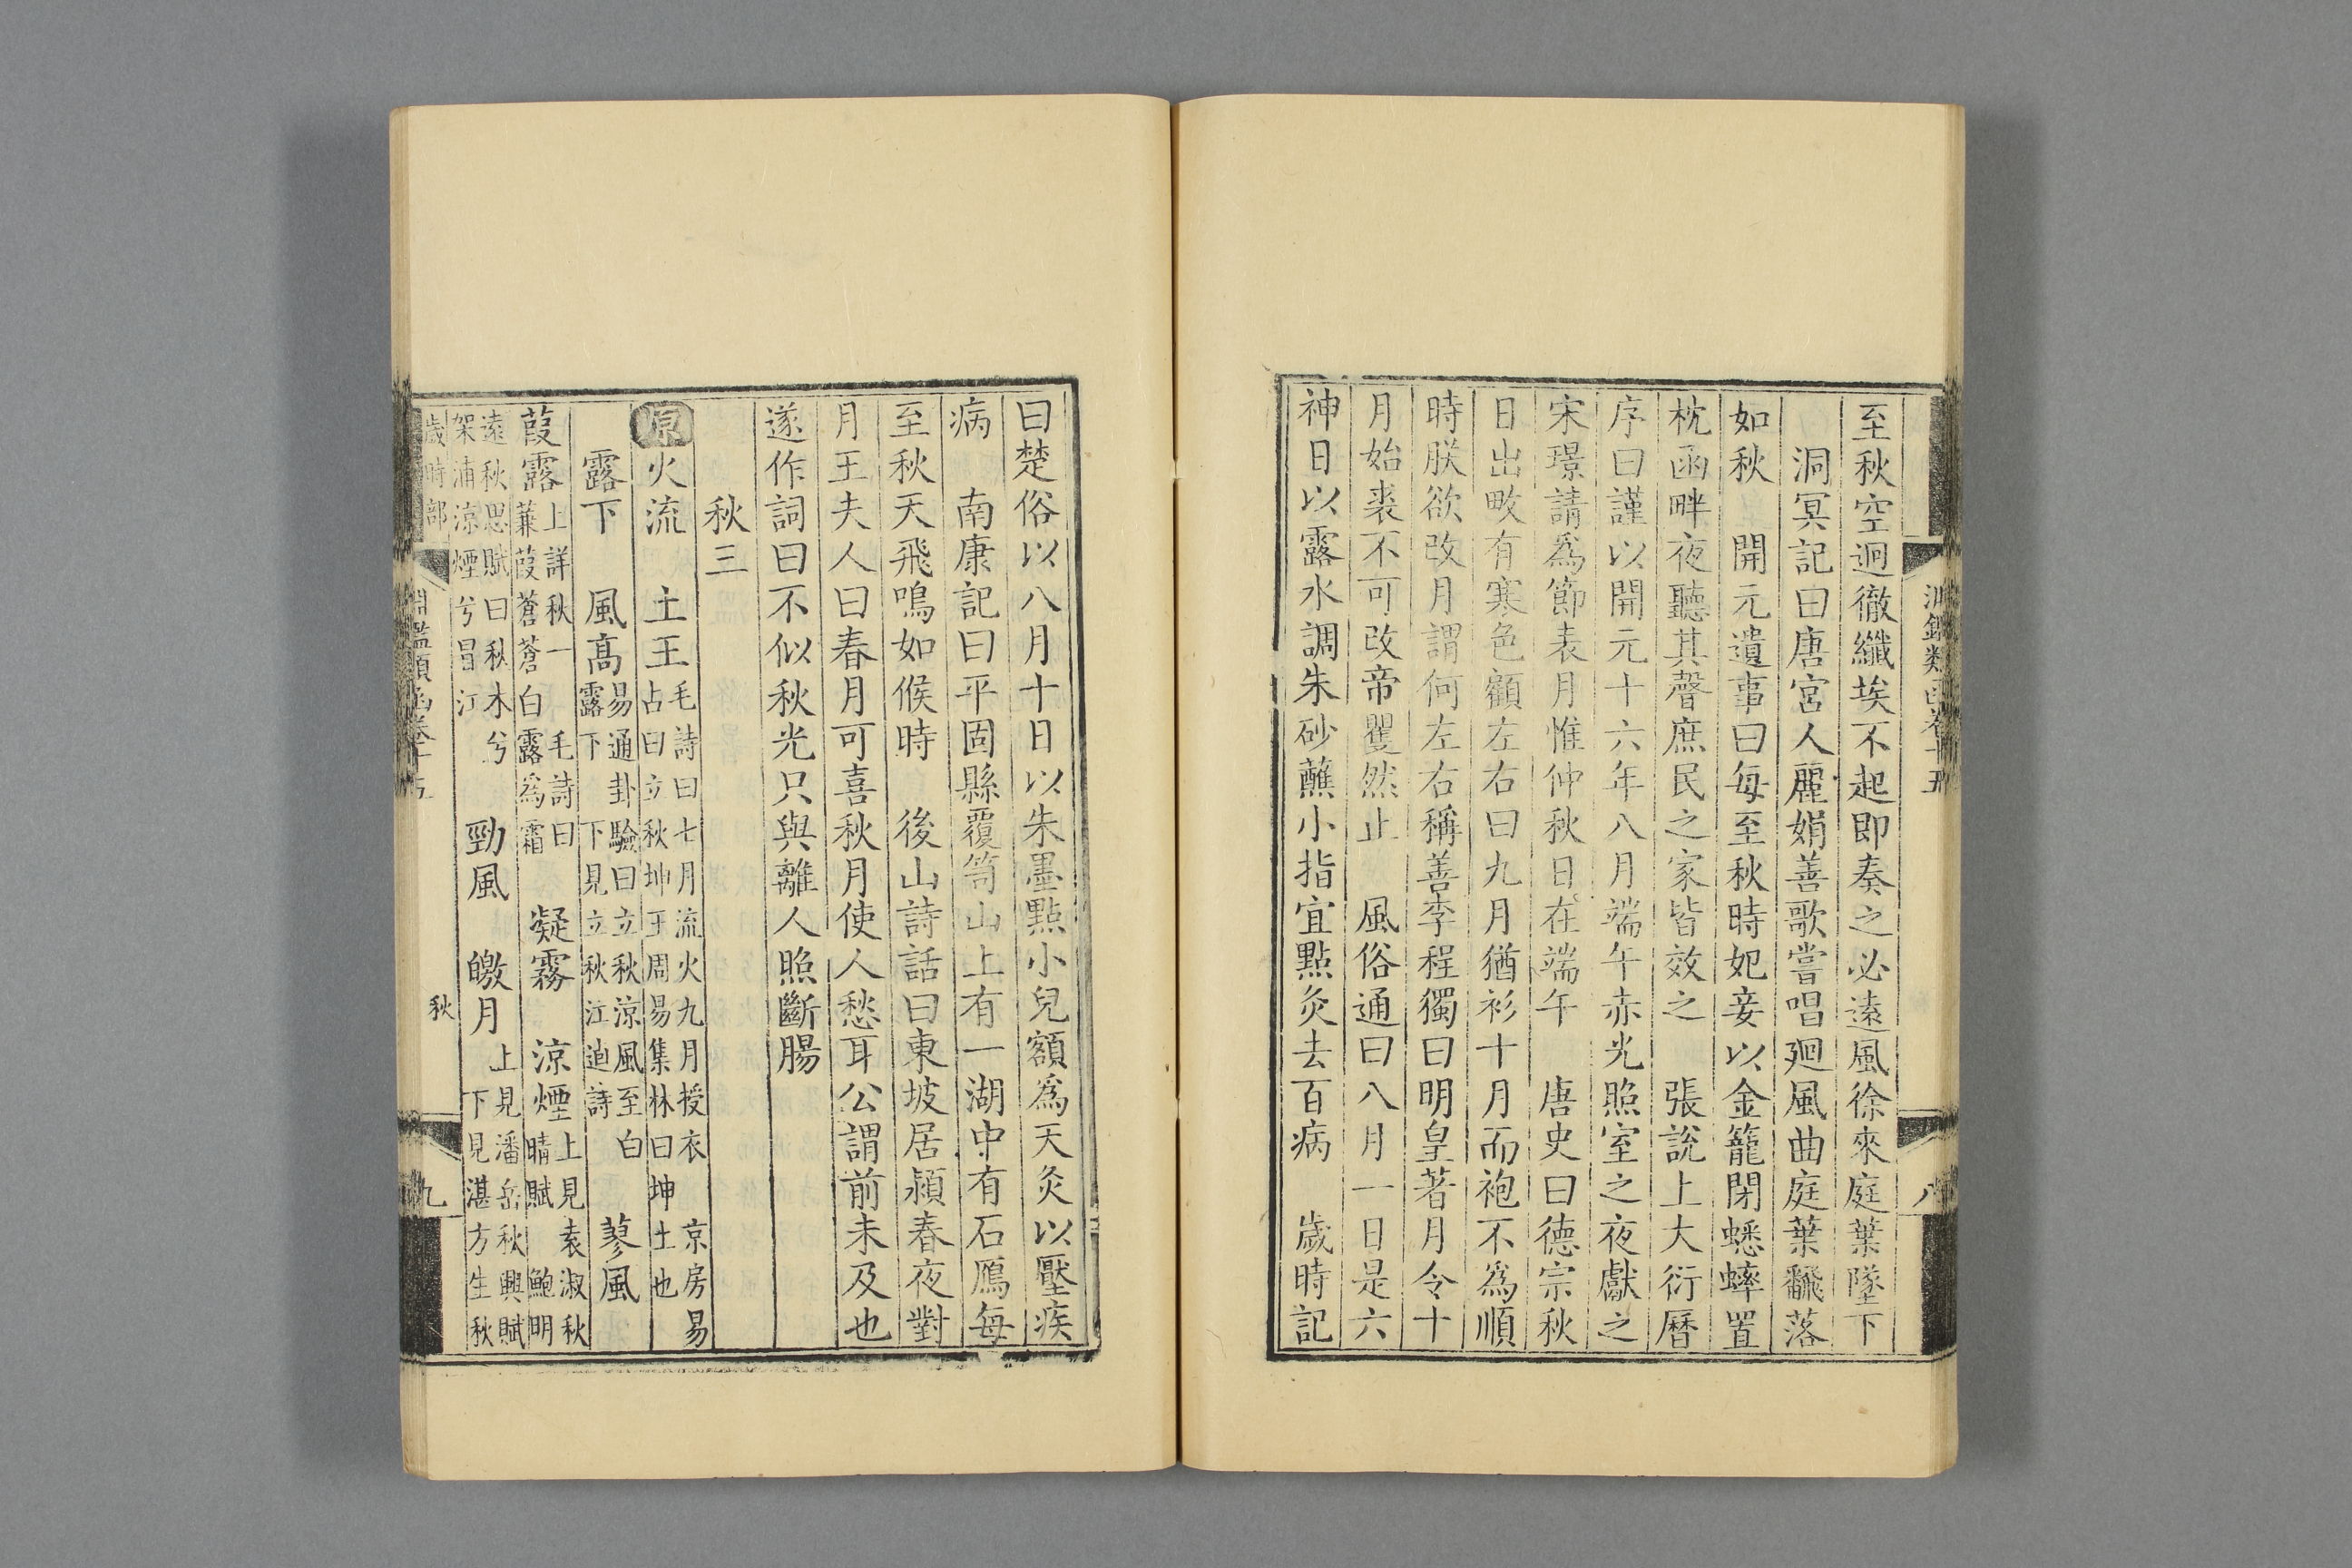 淵鑑類函卷十五
八
至秋空迥徹纖埃不起即奏之必遠風徐來庭葉墜下
洞冥記曰唐宮人麗娟善歌嘗唱廻風曲庭葉飜落
如秋　開元遺事曰每至秋時妃妾以金籠閉蟋蟀置
枕函畔夜聽其聲庶民之家皆效之　張說上大衍曆
序曰謹以開元十六年八月端午赤光照室之夜獻之
宋璟請爲節表月惟仲秋日在端午　唐史曰德宗秋
日出畋有寒色顧左右曰九月猶衫十月而袍不爲順
時朕欲改月謂何左右稱善李程獨曰明皇著月令十
月始裘不可改帝矍然止　風俗通曰八月一日是六
神日以露水調朱砂蘸小指宜點灸去百病　歲時記
曰楚俗以八月十日以朱墨點小兒額爲天灸以壓疾
病　南康記曰平固縣覆笥山上有一湖中有石鴈每
至秋天飛鳴如候時　後山詩話曰東坡居潁春夜對
月王夫人曰春月可喜秋月使人愁耳公謂前未及也
遂作詞曰不似秋光只與離人照斷腸
秋三
原火流　土王毛詩曰七月流火九月授衣　京房易
占曰立秋坤王周易集林曰坤土也
露下　風高易通卦驗曰立秋涼風至白
露下　下見立秋江迪詩　蓼風
葭露上詳秋一　毛詩曰
蒹葭蒼蒼白露爲霜　凝霧　涼煙上見袁淑秋
晴賦　鮑明
遠秋思賦曰秋木兮
架浦涼煙兮冒江　勁風　皦月上見潘岳秋興賦
下見湛方生秋
歲時部
淵鑑類函卷十五
秋
九